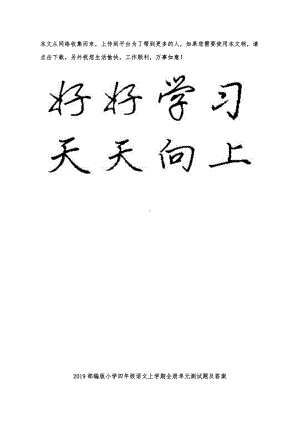 本文从网络收集而来，上传到平台为了帮到更多的人，如果您需要使用本文档，请
点击下载，另外祝您生活愉快，工作顺利，万事如意！
好好学习
天天向上
2019 部编版小学四年级语文上学期全册单元测试题及答案